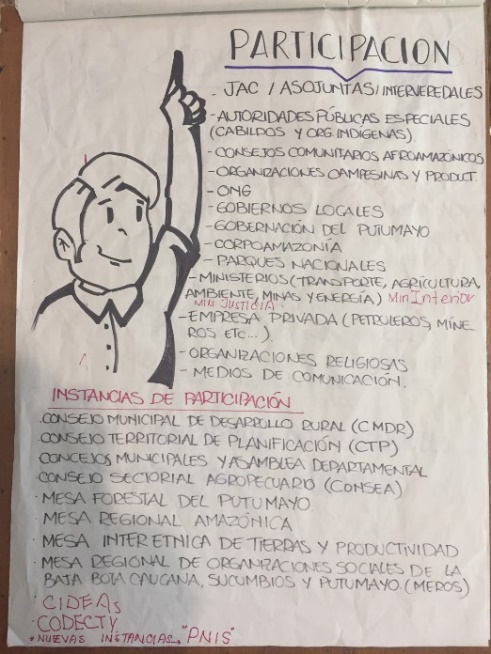 PARTICIPACION
- JAC / ASOJUNTAS / INTERVEREDALES
- AUTORIDADES PÚBLICAS ESPECIALES
(CABILDOS Y ORG. INDIGENAS).
- CONSEJOS COMUNITARIOS AFROAMAZÓNICOS
- ORGANIZACIONES CAMPESINAS Y PRODUCT.
- ONG
- GOBIERNOS LOCALES
- GOBERNACIÓN DEL PUTUMAYO
- CORPOAMAZONÍA
- PARQUES NACIONALES
- MINISTERIOS (TRANSPORTE, AGRÍCULTURA,
AMBIENTE, MINAS Y ENERGÍA) Min Interior
MIN JUSTICIA
- EMPRESA PRIVADA (PETROLEROS, MINE-
ROS ETC...).
- ORGANIZACIONES RELIGIOSAS
- MEDIOS DE COMUNICACIÓN.
INSTANCIAS DE PARTICIPACIÓN
. CONSEJO MUNICIPAL DE DESARROLLO RURAL (CMDR)
CONSEJO TERRITORIAL DE PLANIFICACIÓN (CTP)
CONCEJOS MUNICIPALES Y ASAMBLEA DEPARTAMENTAL
CONSEJO SECTORIAL AGROPECUARIO (CONSEA)
· MESA FORESTAL DEL PUTUMAYO
· MESA REGIONAL AMAZÓNICA
· MESA INTERETNICA DE TIERRAS Y PRODUCTIVIDAD
· MESA REGIONAL DE ORGANIZACIONES SOCIALES DE LA
BAJA BOTA CAUCANA, SUCUMBIOS Y PUTUMAYO. (MEROS)
· CIDEAS
· CODECTY
* NUEVAS INSTANCIAS "PNIS"